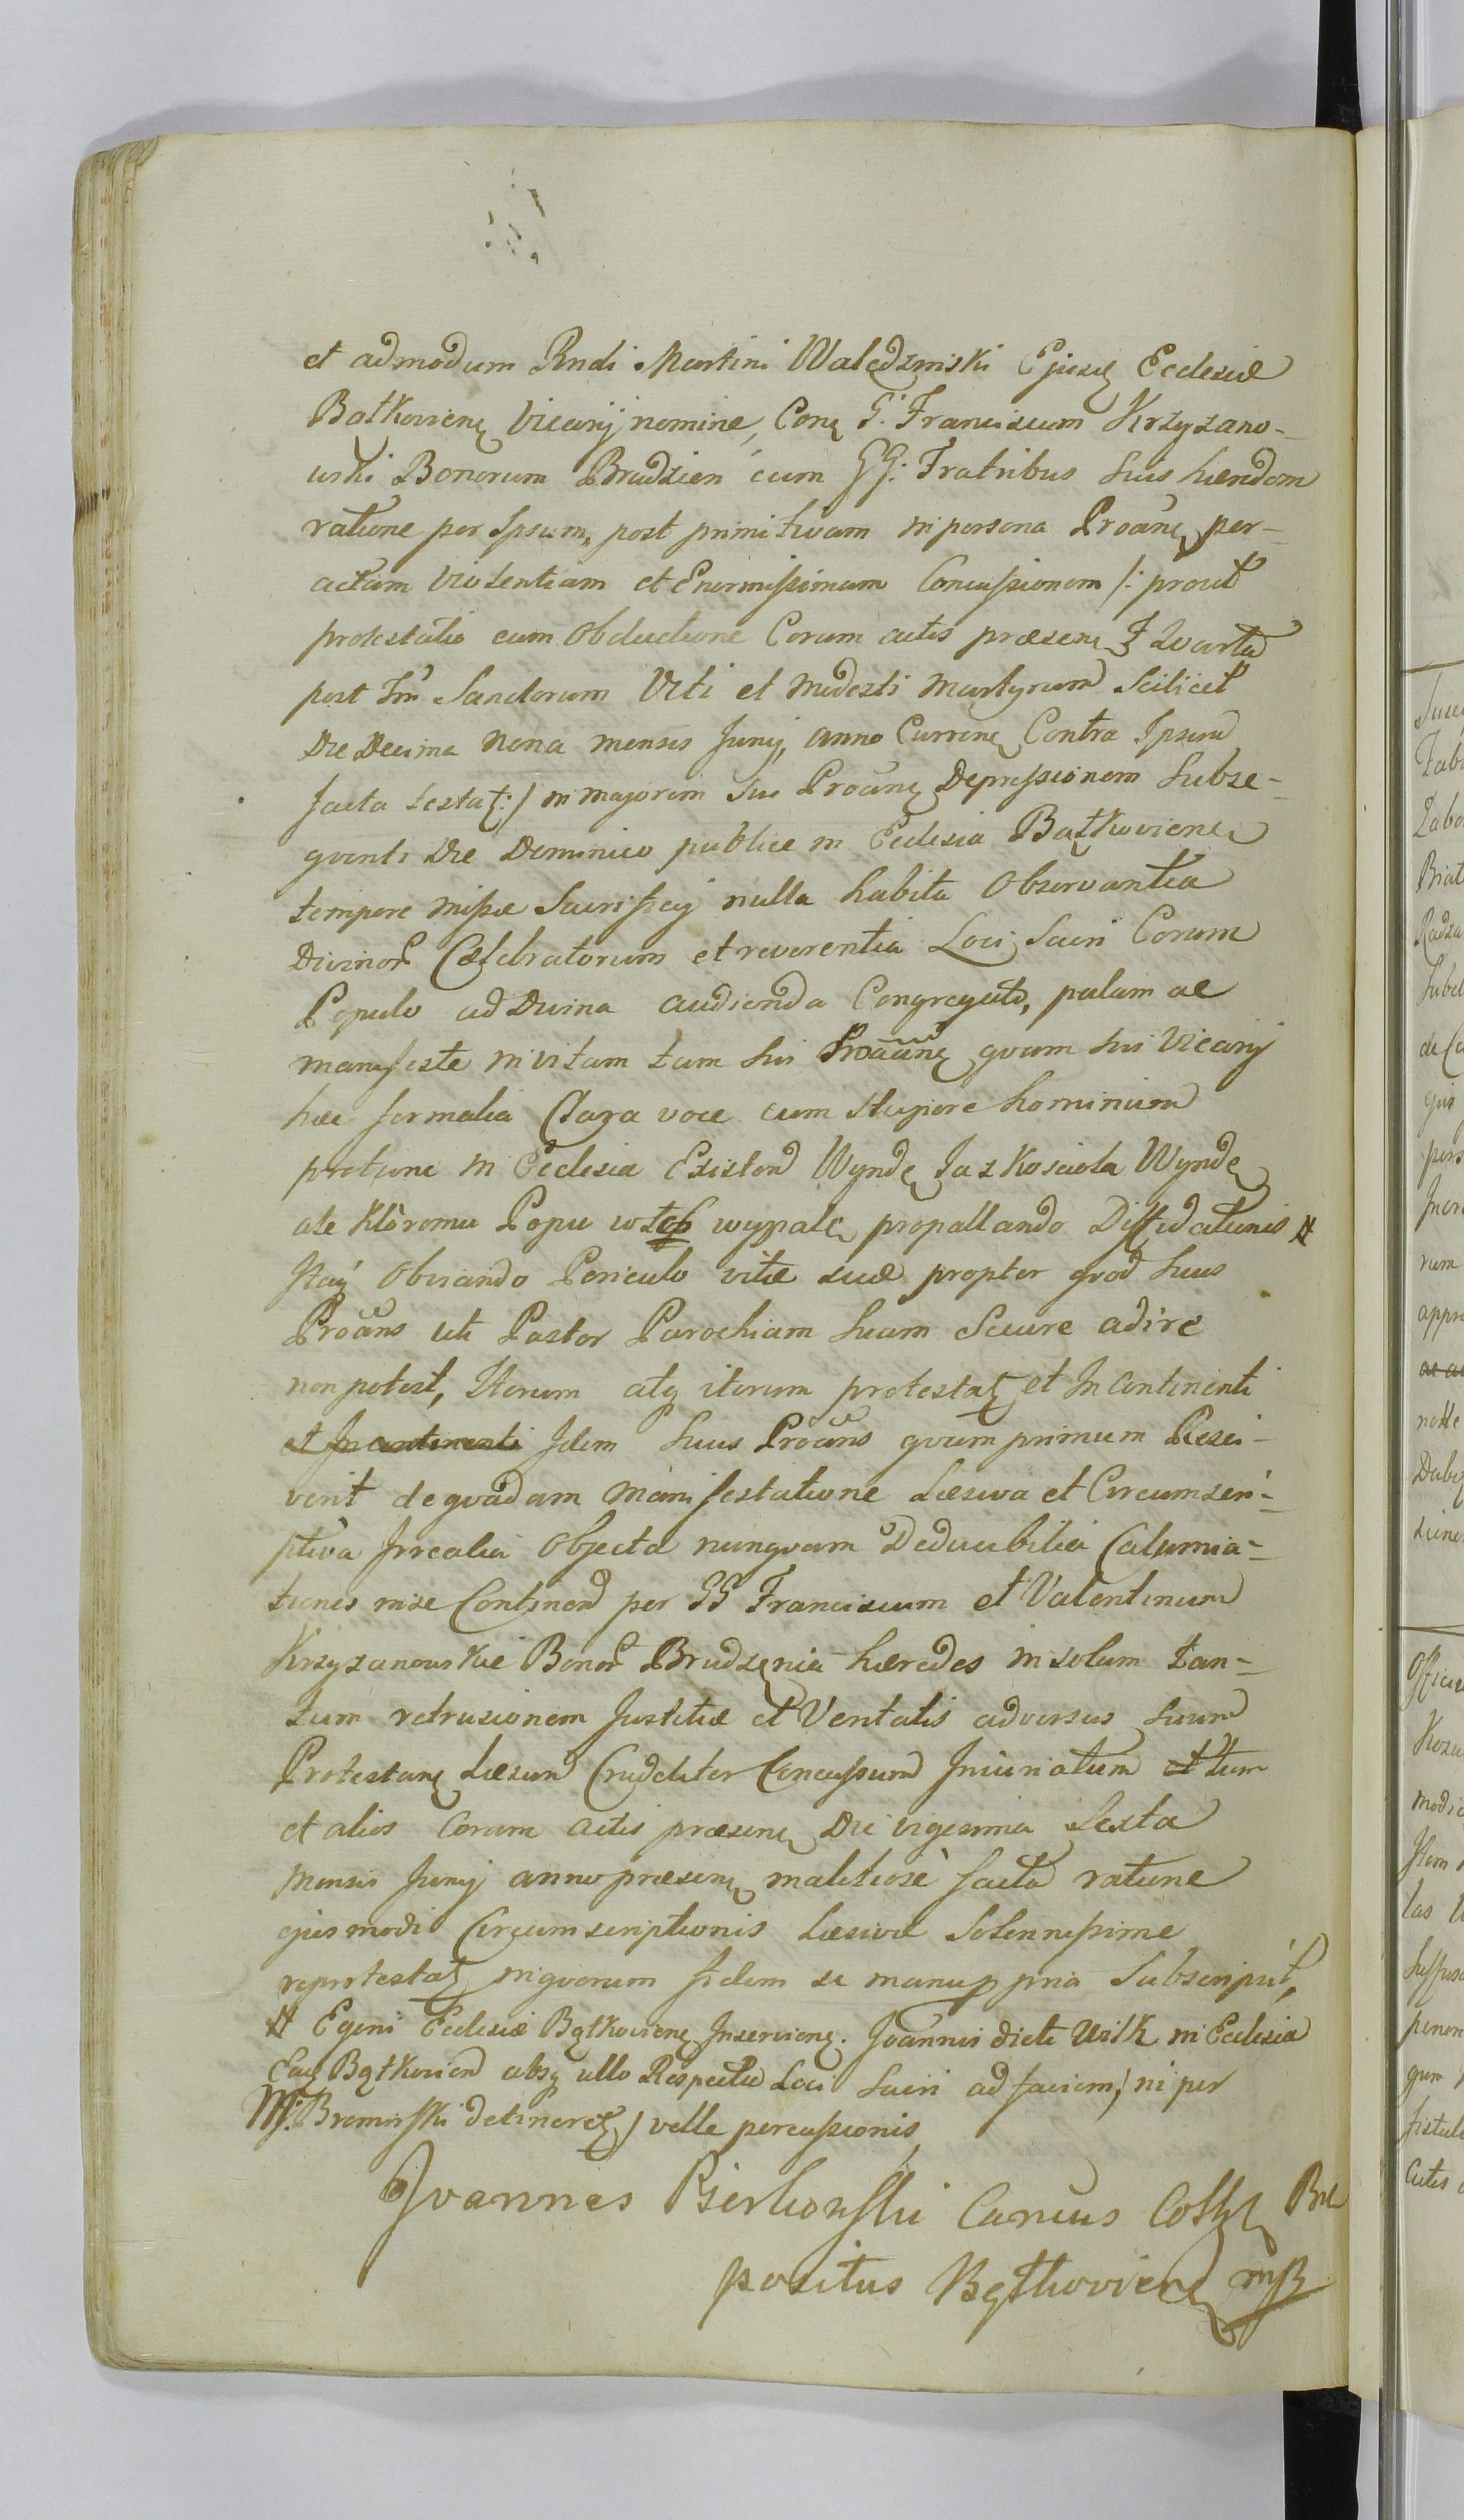 et admodum Rndi Martini Walędzinski Ejusq Ecclesiæ
Bątkovienę Vicarij nomine, Conę G. Franciscum Krzyzano-
wski Bonorum Brudzien cum GG: Fratribus suis hæredem
ratione per Ipsum, post primitivam in persona Proanę per-
actam Violentiam et Enormissimam Concussionem /: prout
protestatio cum Obductione Coram actis præsenę F. Qvarta
post Fm Sanctorum Viti et Modesti Martyrum Scilicet
Die Decima Nona mensis Junij, anno Currenę Contra Ipsum
facta testat:/ in majorem sui Proanę Depressionem Subse-
qventi Die Dominico publice in Ecclesia Bątkovienę
tempore missæ Sacrificij nulla habita Observantia
Divinor Cælebratorum et reverentia Loci Sacri Coram
Populo ad Divina audienda Congregato, palam ac
manifeste in vitam tam sui Proanę qvam sui Vicarij
hæc formalia Clara voce cum stupore hominum
protunc in Ecclesia Existend Wyndę Ja z Kosciola Wyndę
ale ktòremu Popu w łeb wypalę propallando Diffidationis #
Itaq Obviando Periculo vitæ suæ propter qvod suus
Proans uti Pastor Parochiam suam Secure adire
non potest, Iterum atq iterum protestat et In Continenti
et In continenti Idem suus Proans qvam primum Resci-
verit de qvadam Manifestatione Læsiva et Circumscri-
ptiva Irrealia Objecta nunqvam Deducibilia Calumnia-
tiones in se Continen per GG Franciscum et Valentinum
Krzyzanowskie Bonor Brudzenia hæredes in solam tan-
tum retrusionem Justitiæ et Veritatis adversus suum
Protestanę Læsum Crudeliter Concussum Iniuriatum et tum
et alios Coram actis præsenę Die vigesima Sexta
Mensis Junij anno præsenę malitiosè facta ratione
ejusmodi Circumscriptionis Læsivæ Solennissime
reprotestat in qvorum fidem se manu ppria Subscripsit,
# Egeni Ecclesiæ Bątkovienę Inservienę. Joannis dicti Wilk in Ecclesia
Eaq Bątkovien absq ullo Respectu Loci Sacri ad faciem, ni per
M: Bromirski detineret / velle percussionis
Joannes Pierkowski Cancus Pre
positus Bątkovienę mp